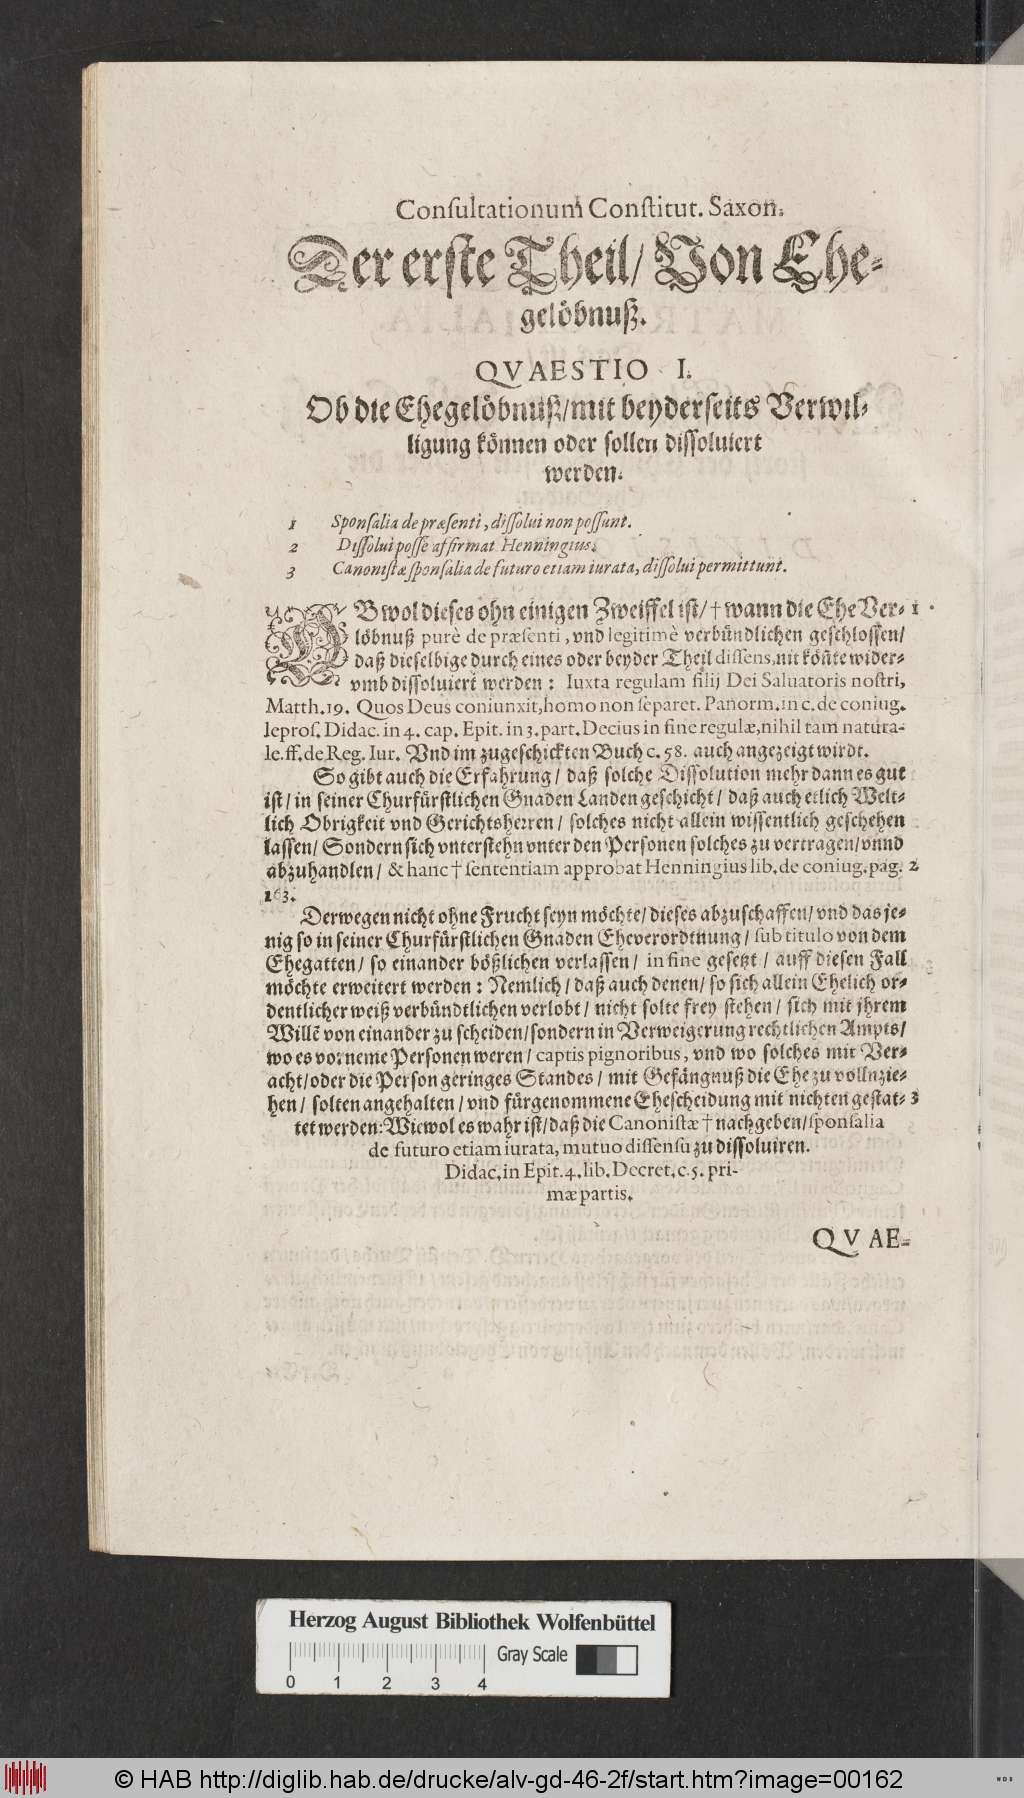 Conſultationum Conſtitut. Saxon.
Der erſte Theil/ Von Ehe-
gelöbnuß.
QVAESTIO I.
Ob die Ehegelöbnuß/mit beyderſeits Verwil-
ligung können oder ſollen diſſoluiert
werden.
1 Sponſalia de præſenti, diſſolui non poſſunt.
2 Diſſolui poſſe affirmat Henningius.
3 Canoniſtæ ſponſalia de futuro etiam iurata, diſſolui permittunt.
OBwol dieſes ohn einigen Zweiffel iſt/ † wann die Ehe Ver- 1
löbnuß purè de præſenti, vnd legitimè verbündlichen geſchloſſen/
daß dieſelbige durch eines oder beyder Theil diſſens, nit köñte wider-
vmb diſſoluiert werden: Iuxta regulam filij Dei Saluatoris noſtri,
Matth. 19. Quos Deus coniunxit, homo non ſeparet. Panorm. in c. de coniug.
leproſ. Didac. in 4. cap. Epit. in 3. part. Decius in fine regulæ, nihil tam natura-
le. ff. de Reg. Iur. Vnd im zugeſchickten Buch c. 58. auch angezeigt wirdt.
So gibt auch die Erfahrung/ daß ſolche Diſſolution mehr dann es gut
iſt/ in ſeiner Churfürſtlichen Gnaden Landen geſchicht/ daß auch etlich Welt-
lich Obrigkeit vnd Gerichtsherren/ ſolches nicht allein wiſſentlich geſchehen
laſſen/ Sondern ſich vnterſtehn vnter den Perſonen ſolches zu vertragen/ vnnd
abzuhandlen/ & hanc † ſententiam approbat Henningius lib. de coniug. pag. 2
163.
Derwegen nicht ohne Frucht ſeyn möchte/ dieſes abzuſchaffen/ vnd das je-
nig ſo in ſeiner Churfürſtlichen Gnaden Eheverordtnung/ ſub titulo von dem
Ehegatten/ ſo einander bößlichen verlaſſen/ in fine geſetzt/ auff dieſen Fall
möchte erweitert werden: Nemlich/ daß auch denen/ ſo ſich allein Ehelich or-
dentlicher weiß verbündtlichen verlobt/ nicht ſolte frey ſtehen/ ſich mit jhrem
Willẽ von einander zu ſcheiden/ ſondern in Verweigerung rechtlichen Ampts/
wo es vorneme Perſonen weren/ captis pignoribus, vnd wo ſolches mit Ver-
acht/ oder die Perſon geringes Standes/ mit Gefängnuß die Ehe zu vollnzie-
hen/ ſolten angehalten/ vnd fürgenommene Eheſcheidung mit nichten geſtat- 3
tet werden: Wiewol es wahr iſt/ daß die Canoniſtæ † nachgeben/ ſponſalia
de futuro etiam iurata, mutuo diſſenſu zu diſſoluiren.
Didac. in Epit. 4. lib. Decret. c. 5. pri-
mæ partis.
QVAE-
Herzog August Bibliothek Wolfenbüttel
Gray Scale
0 1 2 3 4
© HAB http://diglib.hab.de/drucke/alv-gd-46-2f/start.htm?image=00162